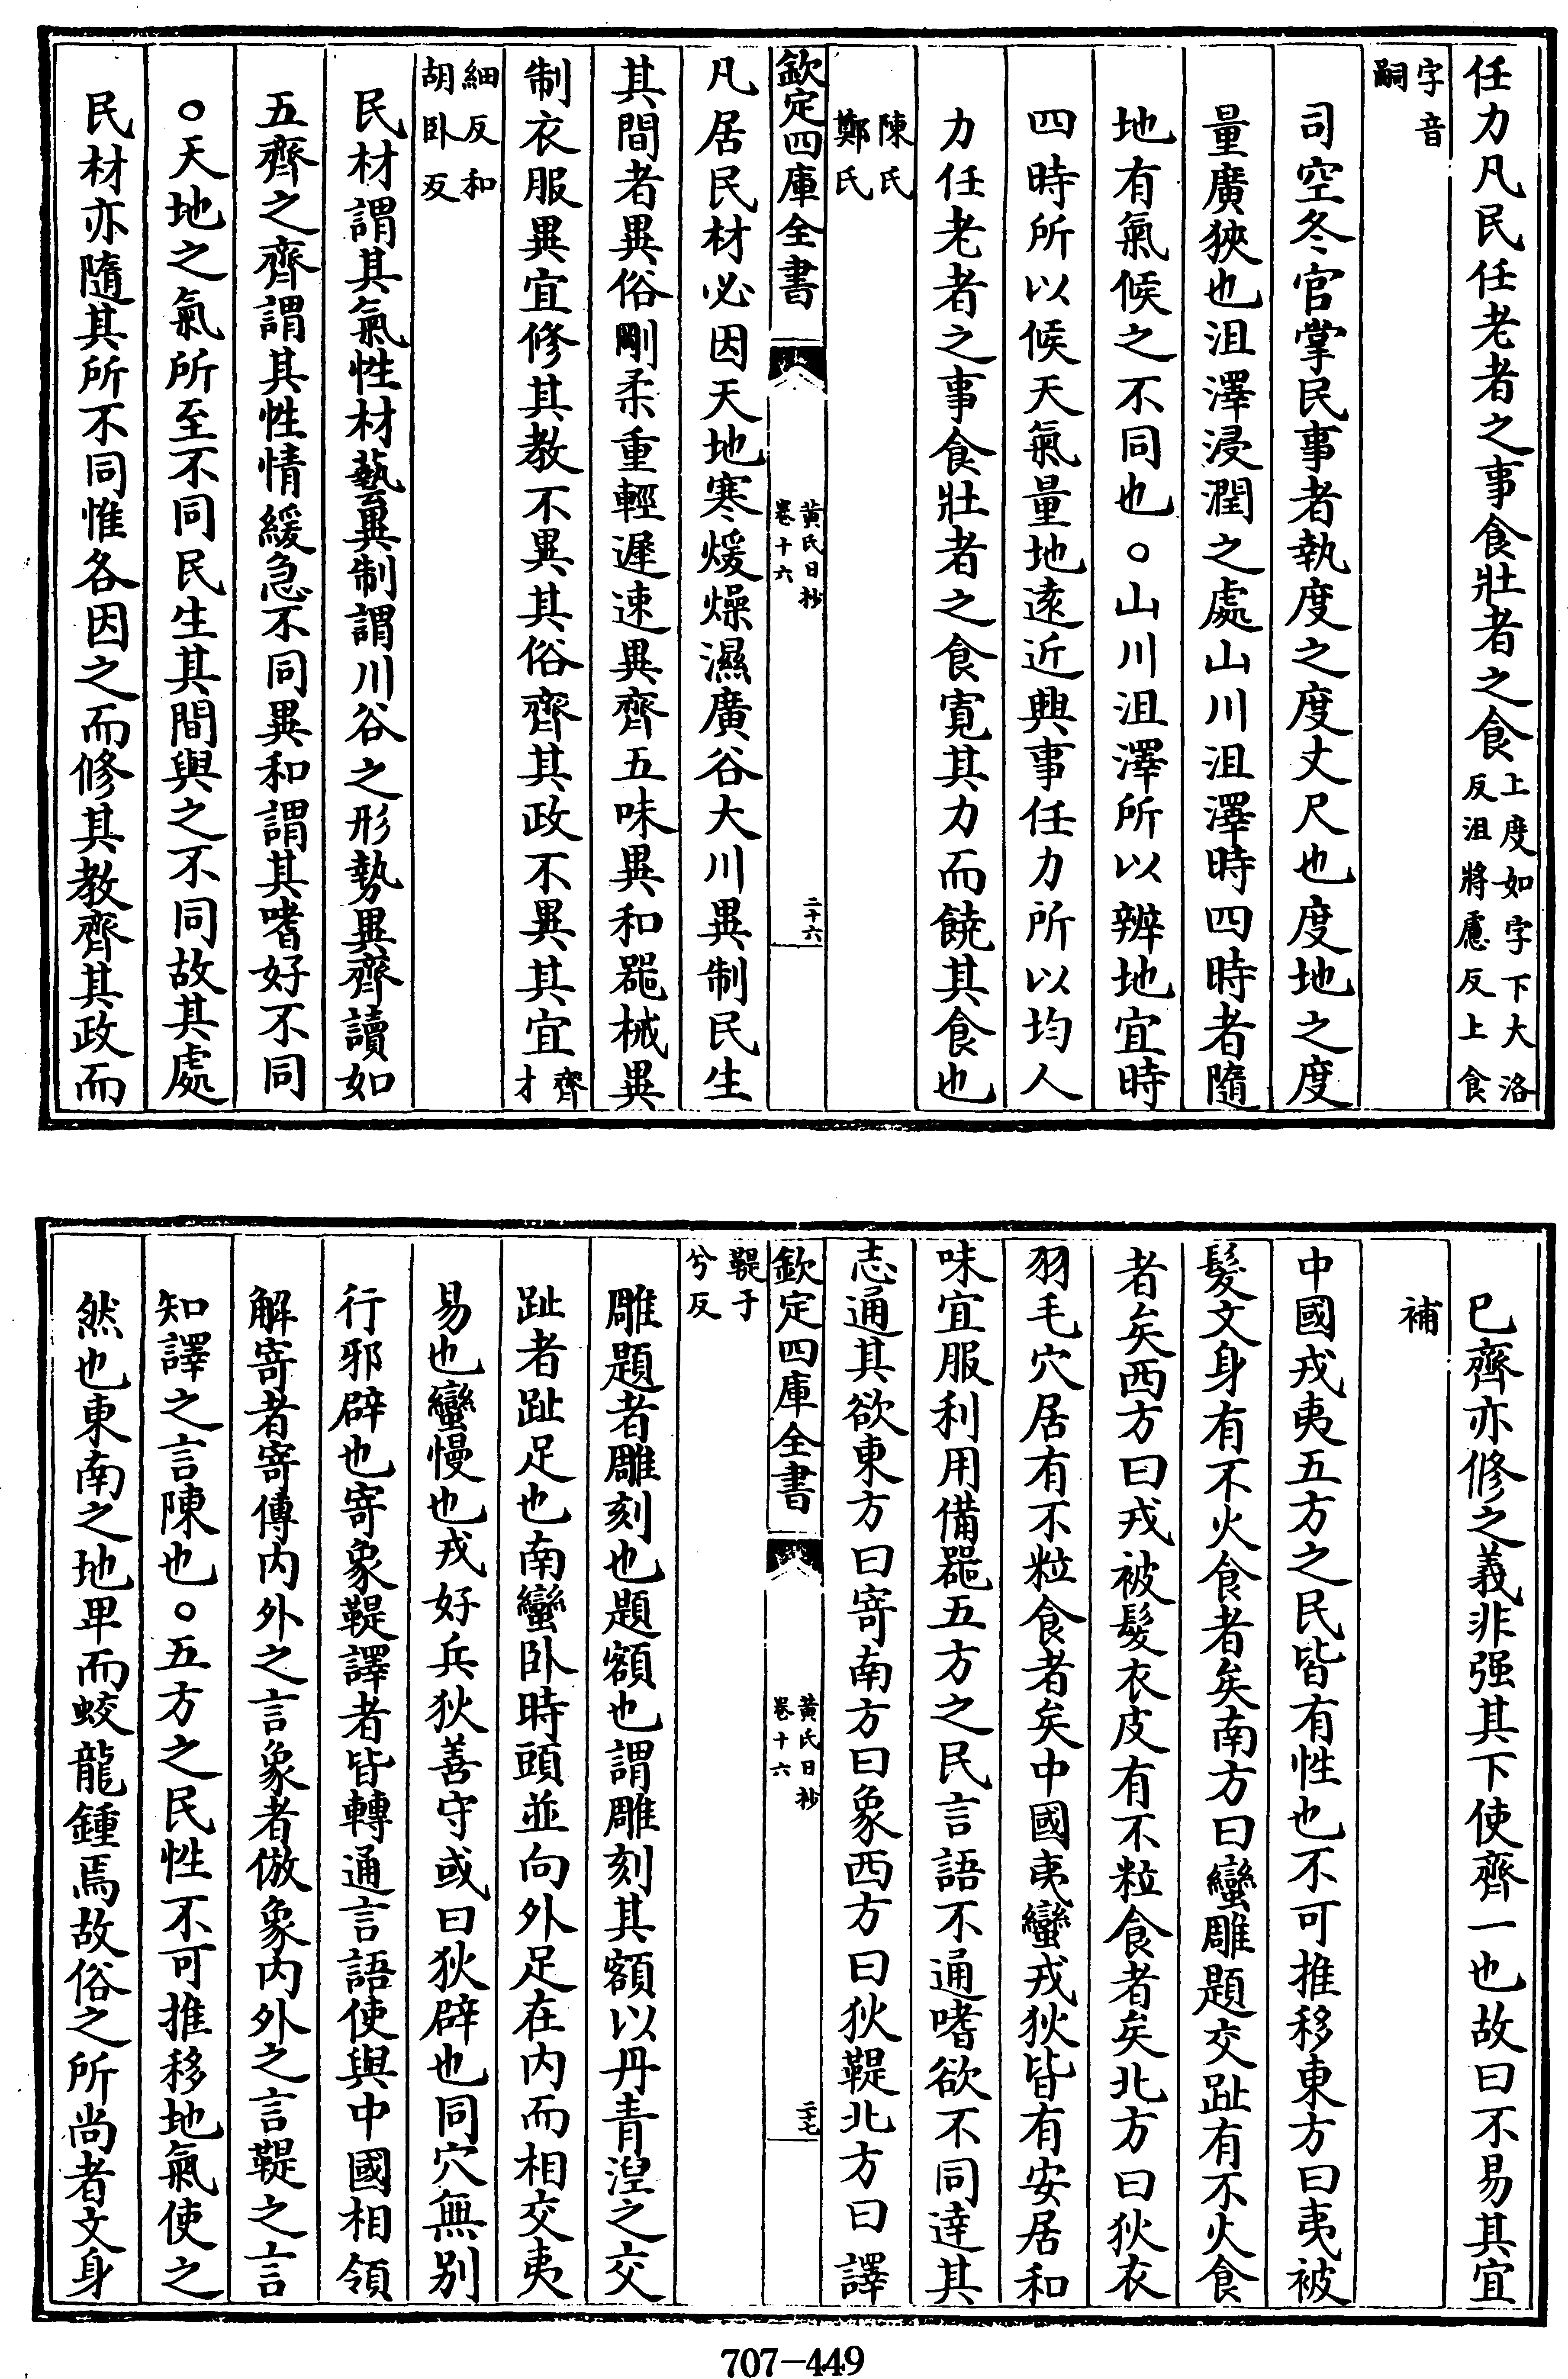 任力凡民任老者之事食壯者之食上度如字下大洛反沮將慮反上食
字音嗣
司空冬官掌民事者執度之度丈尺也度地之度
量廣狹也沮澤浸潤之處山川沮澤時四時者隨
地有氣候之不同也○山川沮澤所以辨地宜時
四時所以候天氣量地逺近興事任力所以均人
力任老者之事食壯者之食寛其力而饒其食也
陳氏鄭氏
欽定四庫全書
黃氏日抄卷十六
二十六
凡居民材必因天地寒煖燥濕廣谷大川異制民生
其間者異俗剛柔重輕遲速異齊五味異和器械異
制衣服異宜修其教不異其俗齊其政不異其宜齊才
細反和胡卧反
民材謂其氣性材藝異制謂川谷之形勢異齊讀如
五齊之齊謂其性情緩急不同異和謂其嗜好不同
○天地之氣所至不同民生其間與之不同故其處
民材亦隨其所不同惟各因之而修其教齊其政而
已齊亦修之義非强其下使齊一也故曰不易其宜
補
中國戎夷五方之民皆有性也不可推移東方曰夷被
髮文身有不火食者矣南方曰蠻雕題交趾有不火食
者矣西方曰戎被髮衣皮有不粒食者矣北方曰狄衣
羽毛穴居有不粒食者矣中國夷蠻戎狄皆有安居和
味宜服利用備器五方之民言語不通嗜欲不同達其
志通其欲東方曰寄南方曰象西方曰狄鞮北方曰譯
欽定四庫全書
黃氏日抄卷十六
二十七
鞮于兮反
雕題者雕刻也題額也謂雕刻其額以丹青湼之交
趾者趾足也南蠻卧時頭並向外足在内而相交夷
易也蠻慢也戎好兵狄善守或曰狄辟也同穴無别
行邪辟也寄象鞮譯者皆轉通言語使與中國相領
解寄者寄傳内外之言象者倣象内外之言鞮之言
知譯之言陳也○五方之民性不可推移地氣使之
然也東南之地卑而蛟龍鍾焉故俗之所尚者文身
707-449